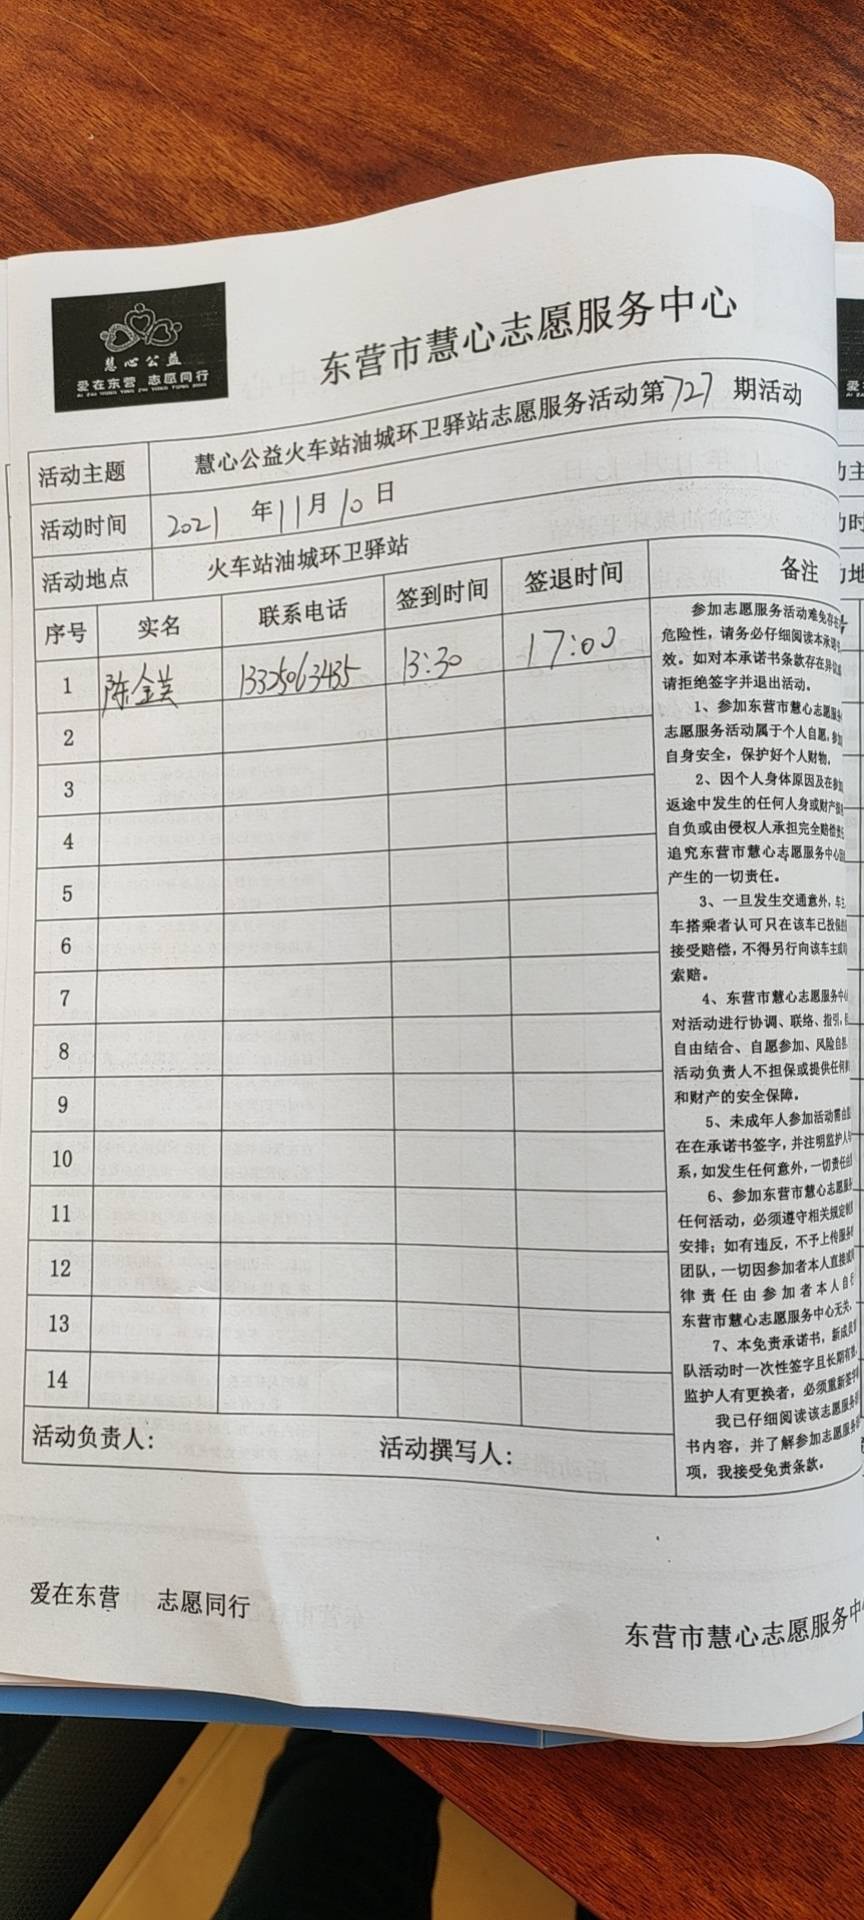 慧心公益
爱在东营 志愿同行
东营市慧心志愿服务中心
活动主题 慧心公益火车站油城环卫驿站志愿服务活动第727期活动
活动时间 2021年11月10日
活动地点 火车站油城环卫驿站
序号 实名 联系电话 签到时间 签退时间 备注
1 陈金 13325063435 13:30 17:00
2
3
4
5
6
7
8
9
10
11
12
13
14
参加志愿服务活动难免存在
危险性，请务必仔细阅读本承诺书
效。如对本承诺书条款存在异议
请拒绝签字并退出活动。
1、参加东营市慧心志愿服务
志愿服务活动属于个人自愿，参加
自身安全，保护好个人财物，
2、因个人身体原因及在参加
返途中发生的任何人身或财产损
自负或由侵权人承担完全赔偿责
追究东营市慧心志愿服务中心
产生的一切责任。
3、一旦发生交通意外，车主
车搭乘者认可只在该车已投保
接受赔偿，不得另行向该车主或
索赔。
4、东营市慧心志愿服务中心
对活动进行协调、联络、指引，
自由结合、自愿参加、风险自
活动负责人不担保或提供任何
和财产的安全保障。
5、未成年人参加活动需由
在在承诺书签字，并注明监护人
系，如发生任何意外，一切责任由
6、参加东营市慧心志愿服务
任何活动，必须遵守相关规定
安排；如有违反，不予上传服务
团队，一切因参加者本人直接或
律责任由参加者本人自
东营市慧心志愿服务中心无关，
7、本免责承诺书，新成员
队活动时一次性签字且长期有效，
监护人有更换者，必须重新签字
我已仔细阅读该志愿服务
书内容，并了解参加志愿服务
项，我接受免责条款。
活动负责人： 活动撰写人：
爱在东营 志愿同行
东营市慧心志愿服务中